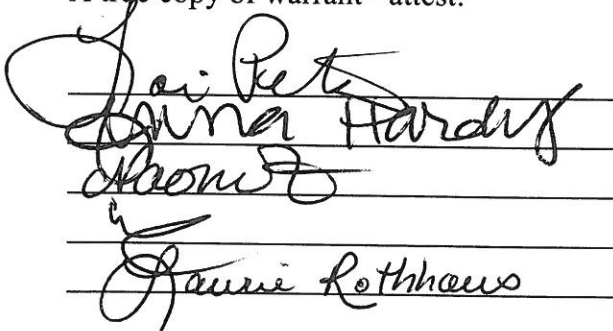 A true copy of warrant - attest:
Lori
Anna Hardy
Naomi
Laurie Rothhaus